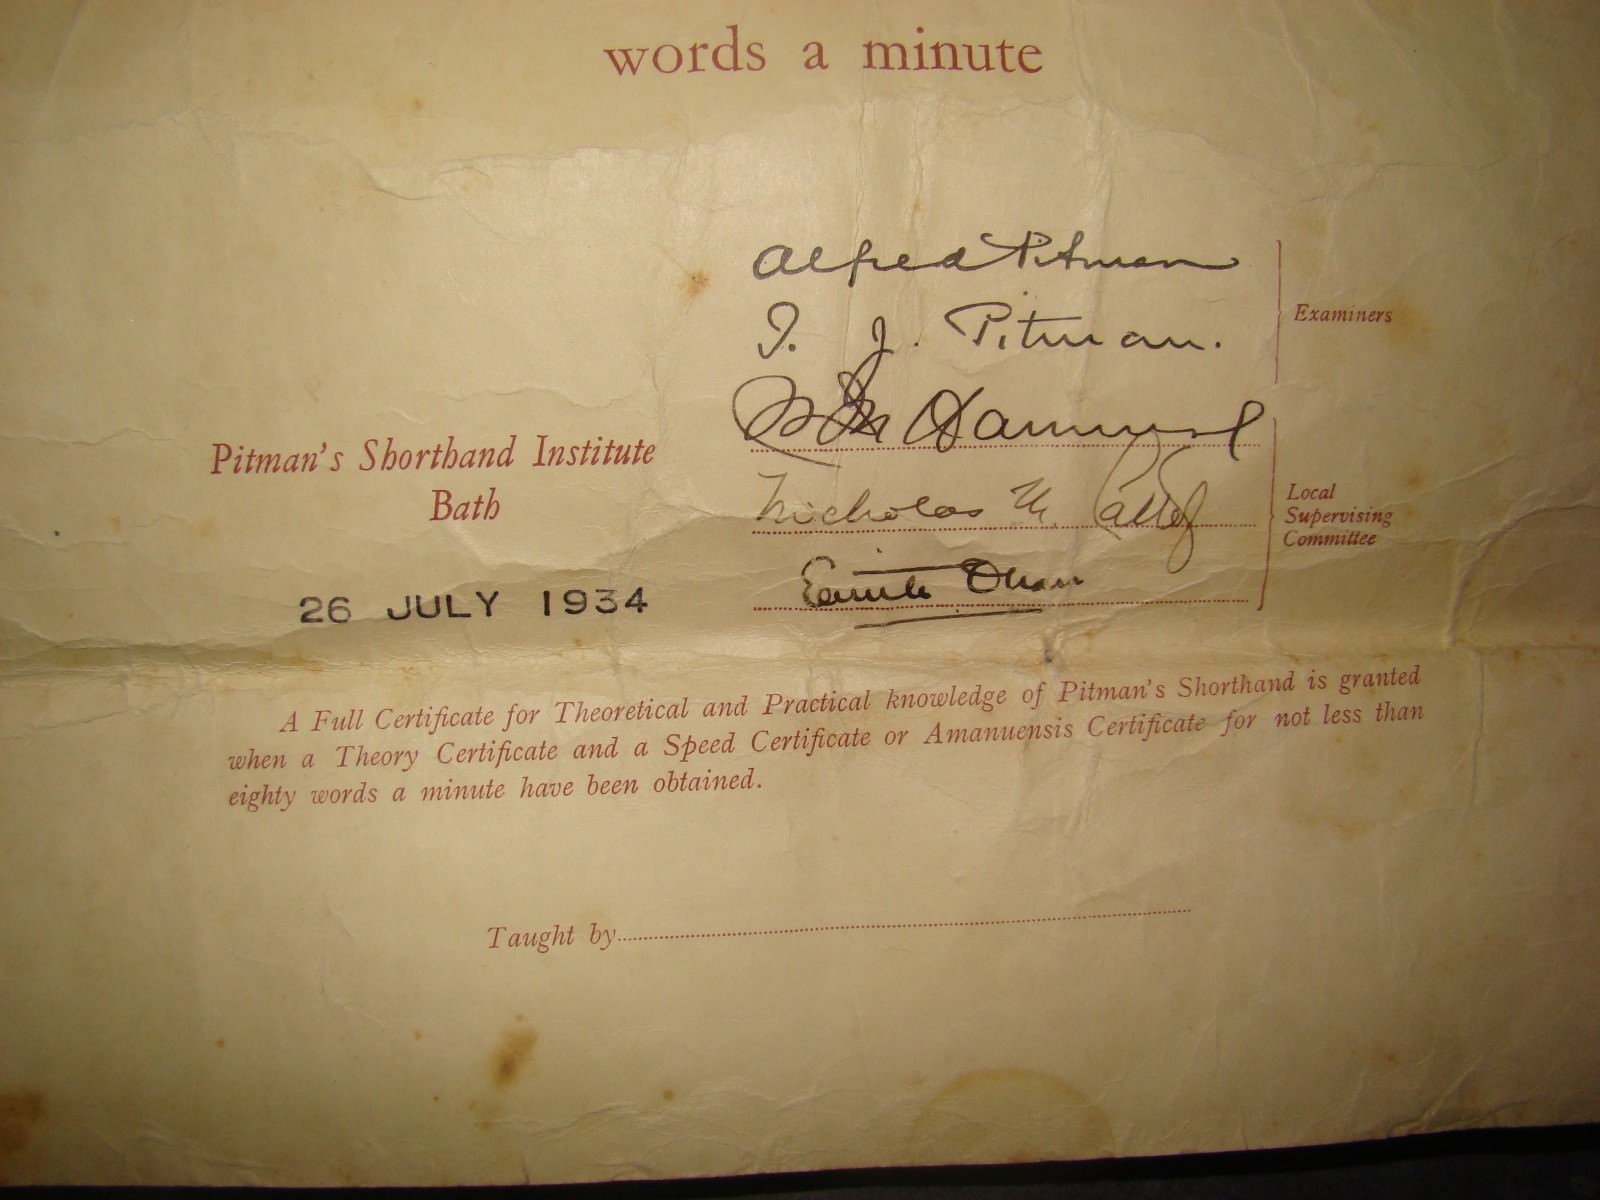 words a minute
Alfred Pitman
I. J. Pitman.
Examiners
Pitman's Shorthand Institute
Bath
Nicholas M.
Local
Supervising
Committee
26 JULY 1934
A Full Certificate for Theoretical and Practical knowledge of Pitman's Shorthand is granted
when a Theory Certificate and a Speed Certificate or Amanuensis Certificate for not less than
eighty words a minute have been obtained.
Taught by